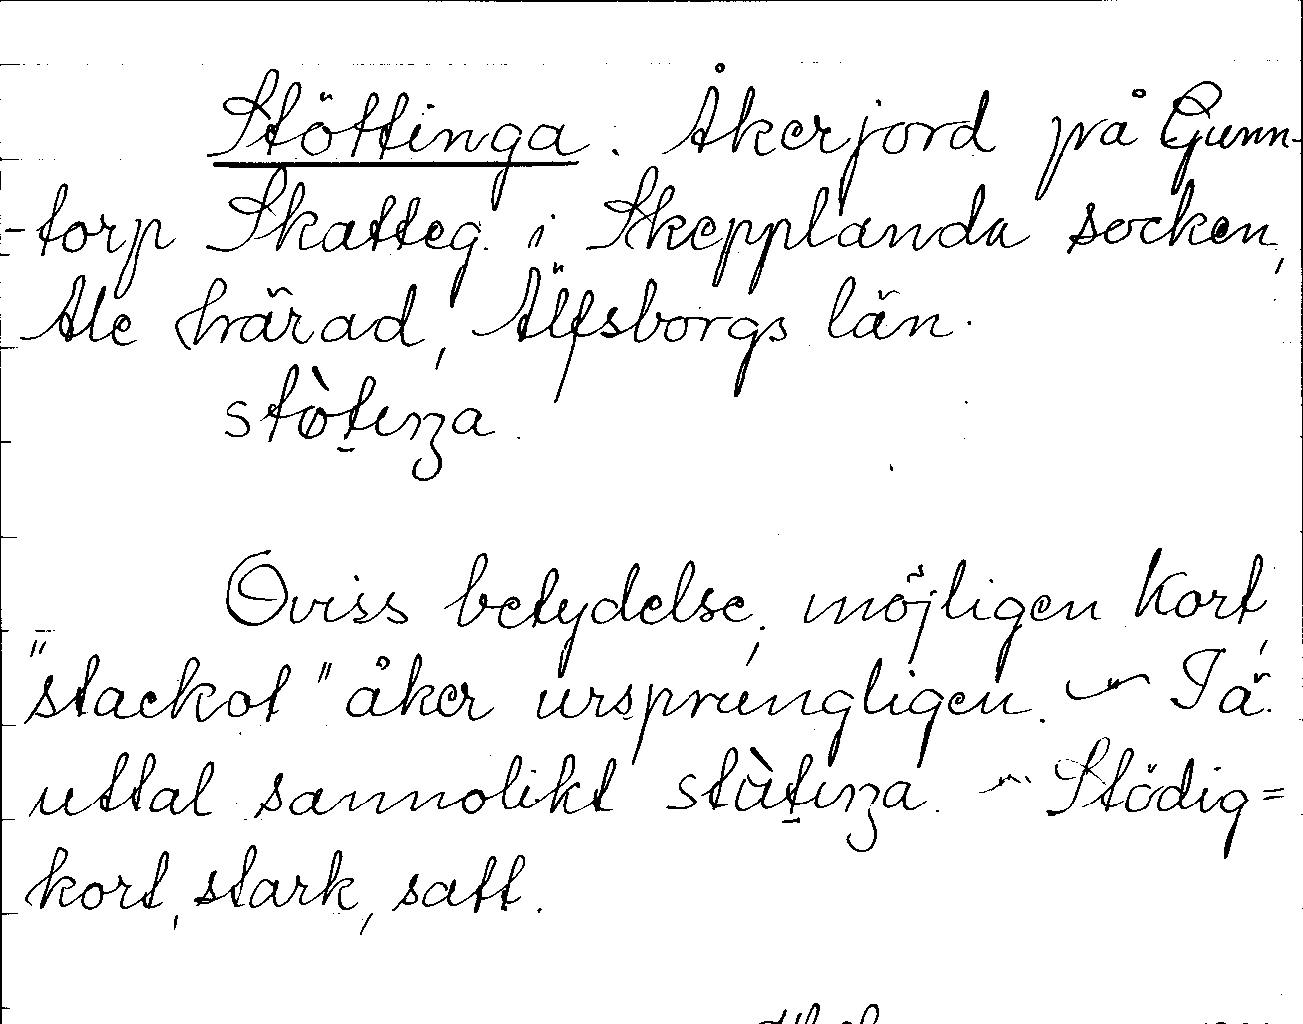 Stöttinga. Åkerjord på Gunn-
-torp Skatteg. i Skepplanda socken,
Ale härad, Älfsborgs län.
stø̀t̠ıŋa.
Oviss betydelse, möjligen kort,
"stackot" åker ursprungligen. – Tä.
uttal sannolikt stùt̠ıŋa. – Stödig =
kort, stark, satt.